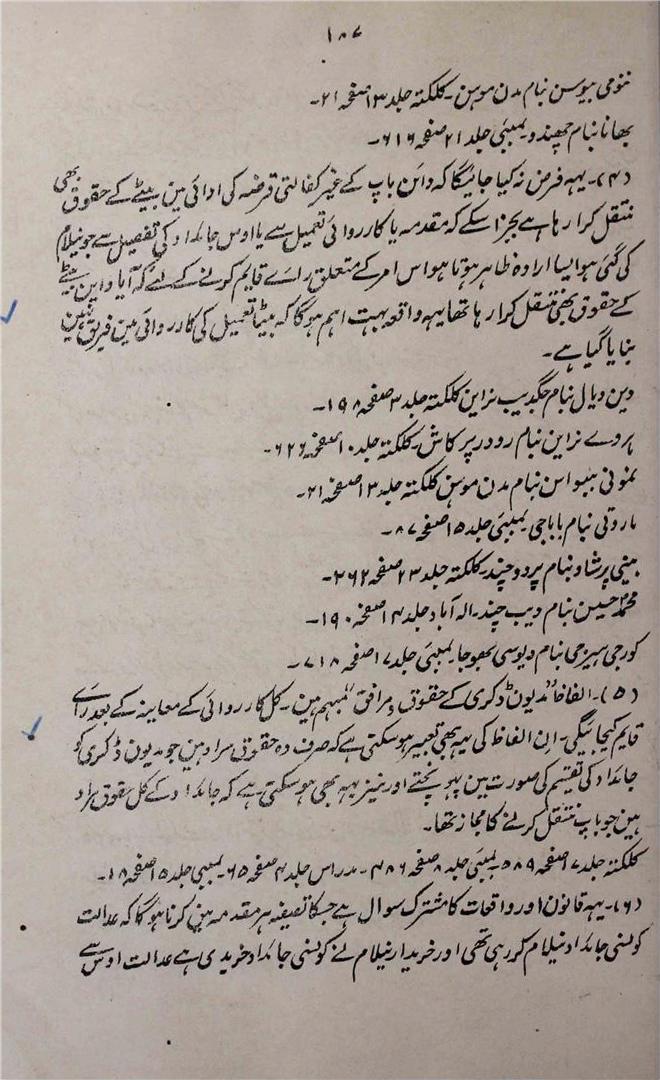 ۱۸۷
ننومی بیوسن بنام مدن موہن۔ کلکتہ جلد ۱۳ صفحہ ۲۱۔
بھانا بنام چھیندو بمبئی جلد ۲۱ صفحہ ۶۱۶۔
(۴)۔ یہہ فرض نہ کیا جائیگا کہ داین باپ کے غیر کفالتی قرضہ کی ادائی مین بیٹے کے حقوق بھی
منتقل کرا رہا ہے بجز اسکے کہ مقدمہ یا کارروائی تعمیل سے یا اوس جائداد کی تفصیل سے جو نیلام
کی گئی ہو ایسا ارادہ ظاہر ہوتا ہو اس امر کے متعلق راے قایم کرنے کے لئے کہ آیا داین بیٹے
کے حقوق بھی منتقل کرا رہا تھا یہہ واقعہ بہت اہم ہوگا کہ بیٹا تعمیل کی کارروائی مین فریق نہین
بنایا گیا ہے۔
دین دیال بنام جگدیب نراین کلکتہ جلد ۳ صفحہ ۱۹۸۔
ہردے نراین بنام رودر پرکاش۔ کلکتہ جلد ۱۰ صفحہ ۶۲۶۔
نمونی ببواسن بنام مدن موہن کلکتہ جلد ۱۳ صفحہ ۲۱۔
ماروتی بنام باباجی۔ بمبئی جلد ۱۵ صفحہ ۸۷۔
بینی پرشاد بنام پردوچند۔ کلکتہ جلد ۲۳ صفحہ ۲۶۲۔
محمد حسین بنام دیب چند۔ الہ آباد جلد ۱۴ صفحہ ۱۹۰۔
کورجی ہیرجی بنام دیوسی بھوجا۔ بمبئی جلد ۱۷ صفحہ ۷۱۸۔
(۵)۔ الفاظ "مدیون ڈکری کے حقوق و مرافق" مبہم ہین۔ کل کارروائی کے معاینہ کے بعد راے
قایم کیجائیگی۔ ان الفاظ کی یہہ بھی تعبیر ہو سکتی ہے کہ صرف وہ حقوق مراد ہین جو مدیون ڈکری کو
جائداد کی تقسیم کی صورت مین پہونچتے اور نیز یہہ بھی ہو سکتی ہے کہ جائداد کے کل حقوق مراد
ہین جو باپ منتقل کرنے کا مجاز تھا۔
کلکتہ جلد ۱۷ صفحہ ۵۸۹۔ بمبئی جلد ۸ صفحہ ۴۸۶۔ مدراس جلد ۴ صفحہ ۶۵۔ بمبئی جلد ۱۵ صفحہ ۱۸۔
(۶)۔ یہہ قانون اور واقعات کا مشترک سوال ہے جسکا تصفیہ ہر مقدمہ مین کرنا ہوگا کہ عدالت
کونسی جائداد نیلام کر رہی تھی اور خریدار نیلام نے کونسی جائداد خریدی ہے عدالت اوس سے